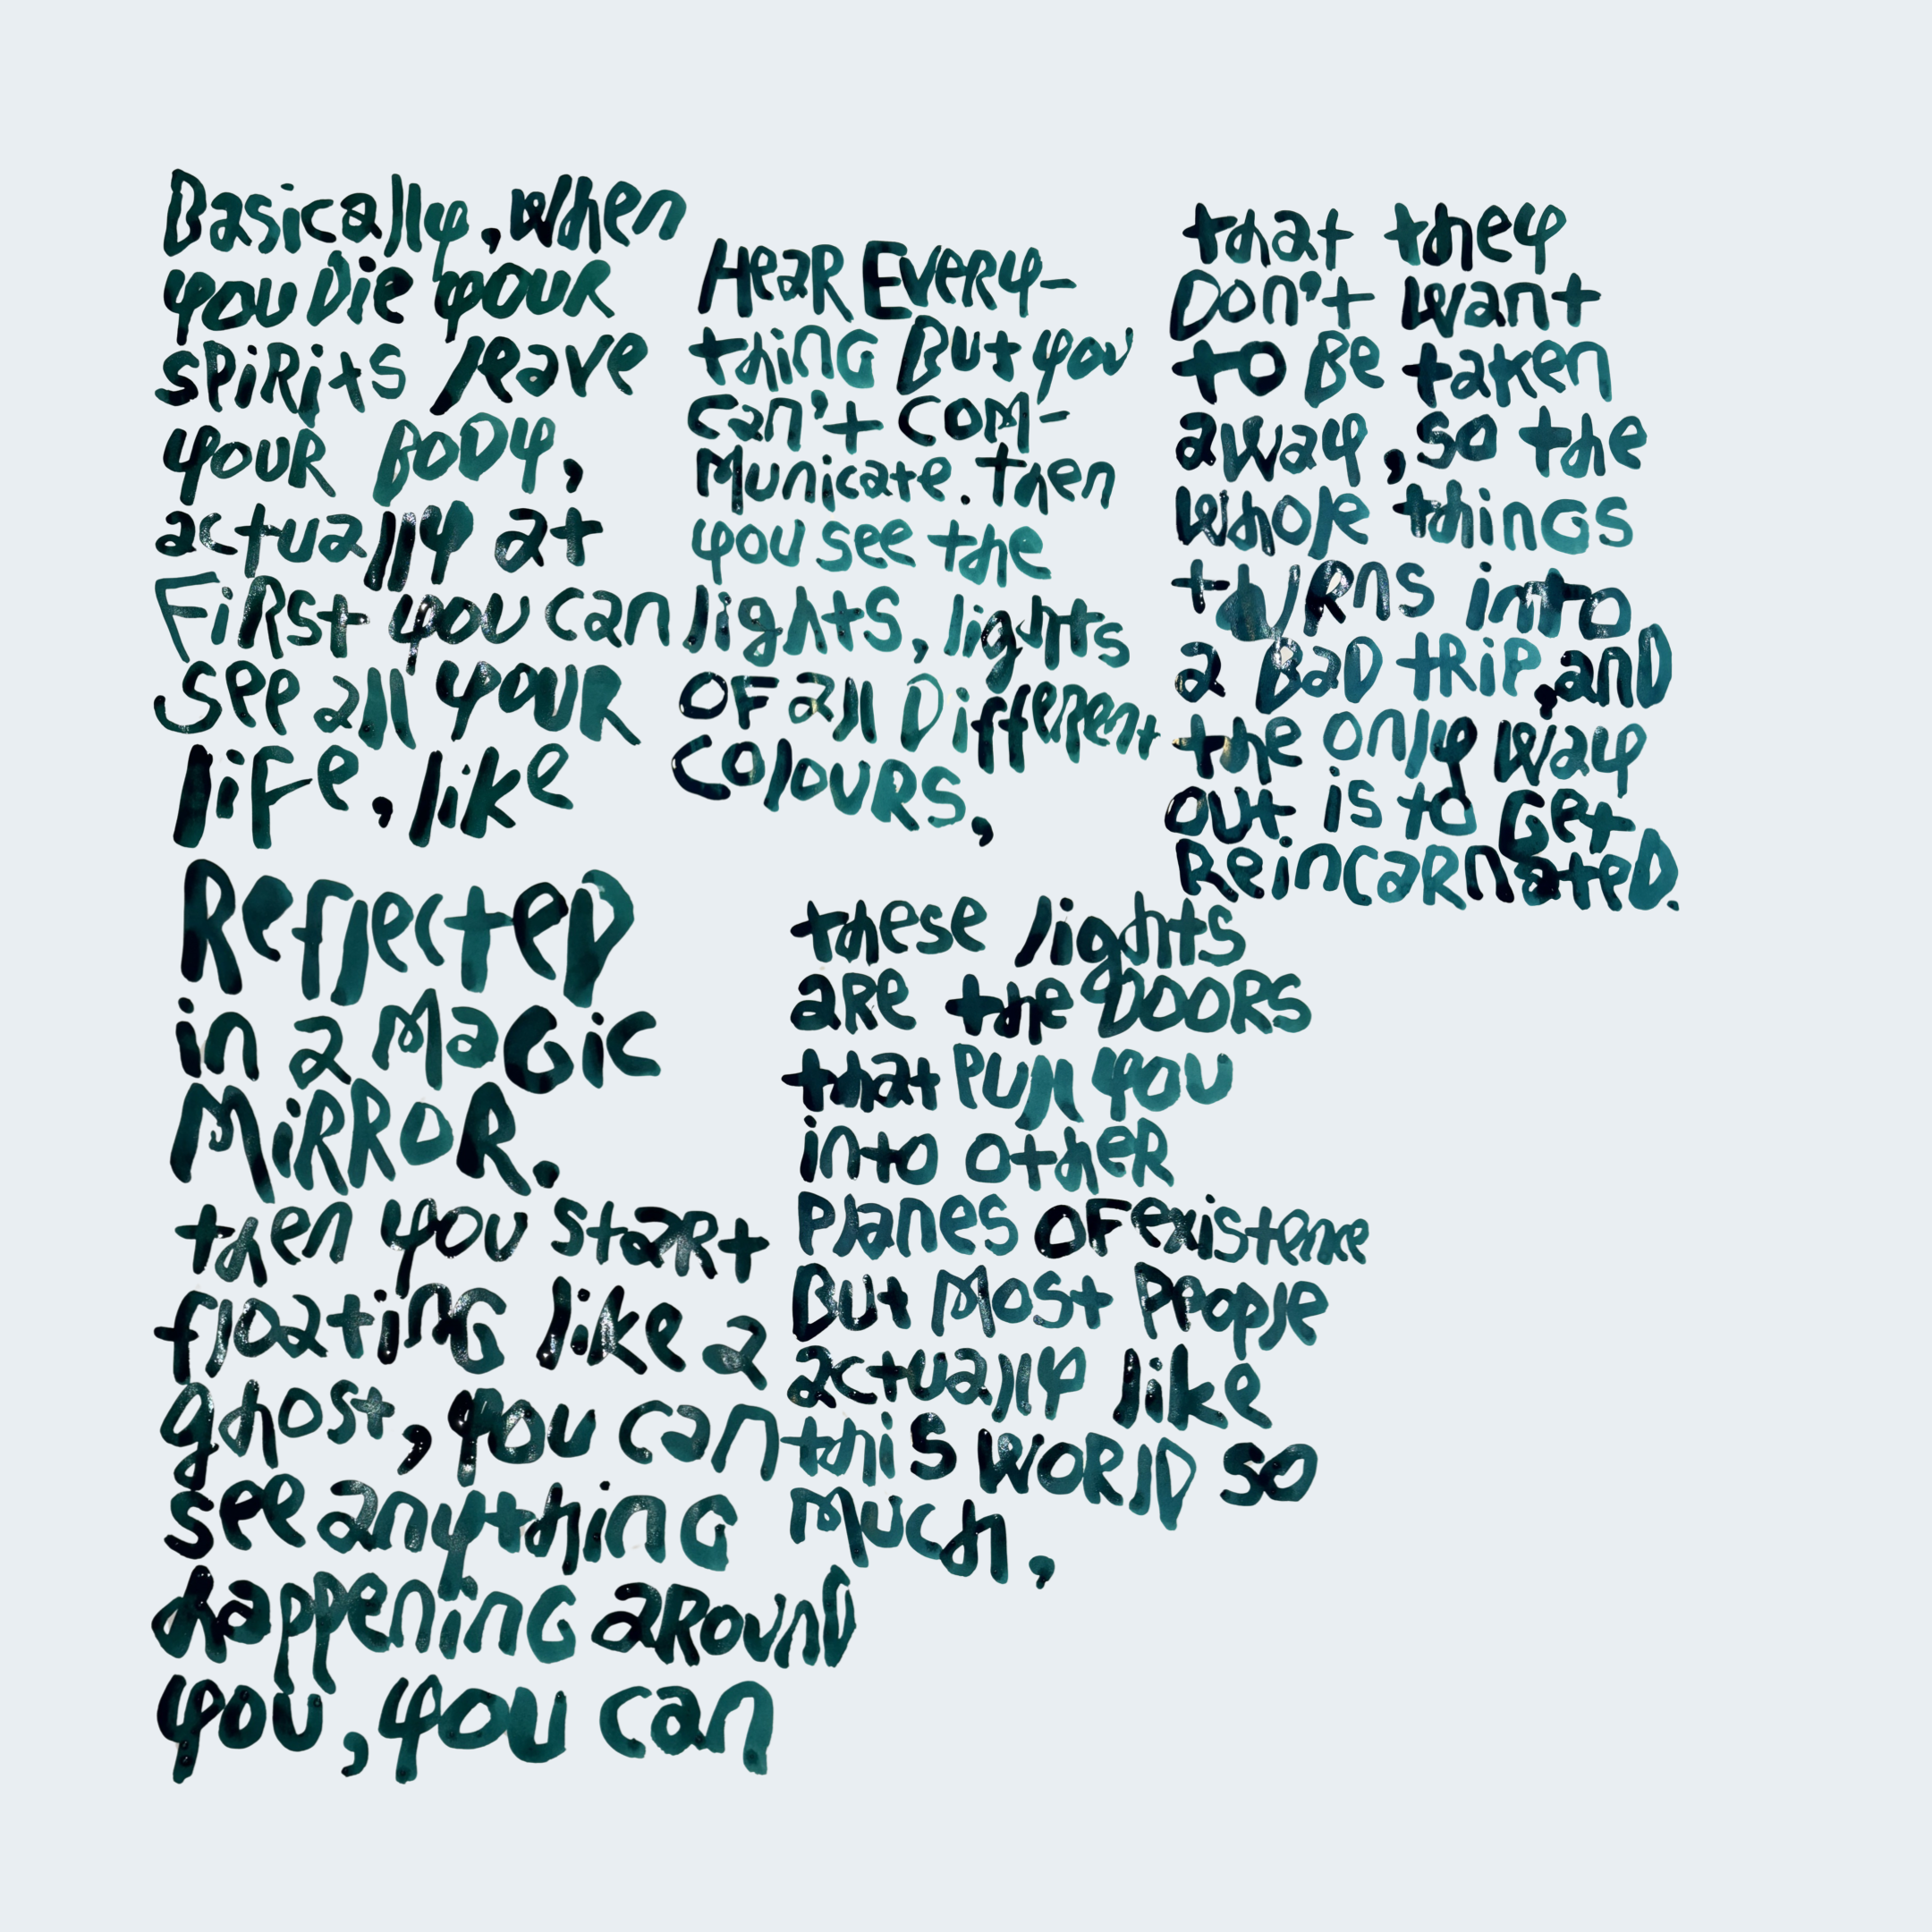 Basically, when
you Die your
spirits leave
your Body,
actually at
First you can
see all your
life, like
Reflected
in a Magic
Mirror.
then you start
floating like a
ghost, you can
see anything
happening around
you, you can
Hear Every-
thing But you
can't com-
municate. Then
you see the
lights, lights
of all Different
colours,
these lights
are the Doors
that pull you
into other
planes of existence
But most people
actually like
this world so
much,
that they
Don't want
to Be taken
away, so the
whole things
turns into
a Bad trip, and
the only way
out is to Get
Reincarnated.